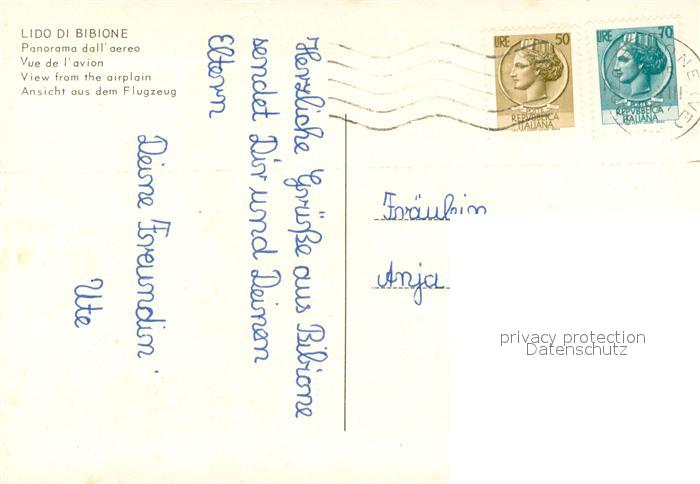 LIDO DI BIBIONE
Panorama dall'aereo
Vue de l'avion
View from the airplain
Ansicht aus dem Flugzeug
Herzliche Grüße aus Bibione
sendet Dir und Deinen
Eltern
Deine Freundin
Ute
LIRE 50
POSTE
REPUBBLICA
ITALIANA
LIRE 70
POSTE
REPUBBLICA
ITALIANA
Fräulein
Anja
privacy protection
Datenschutz